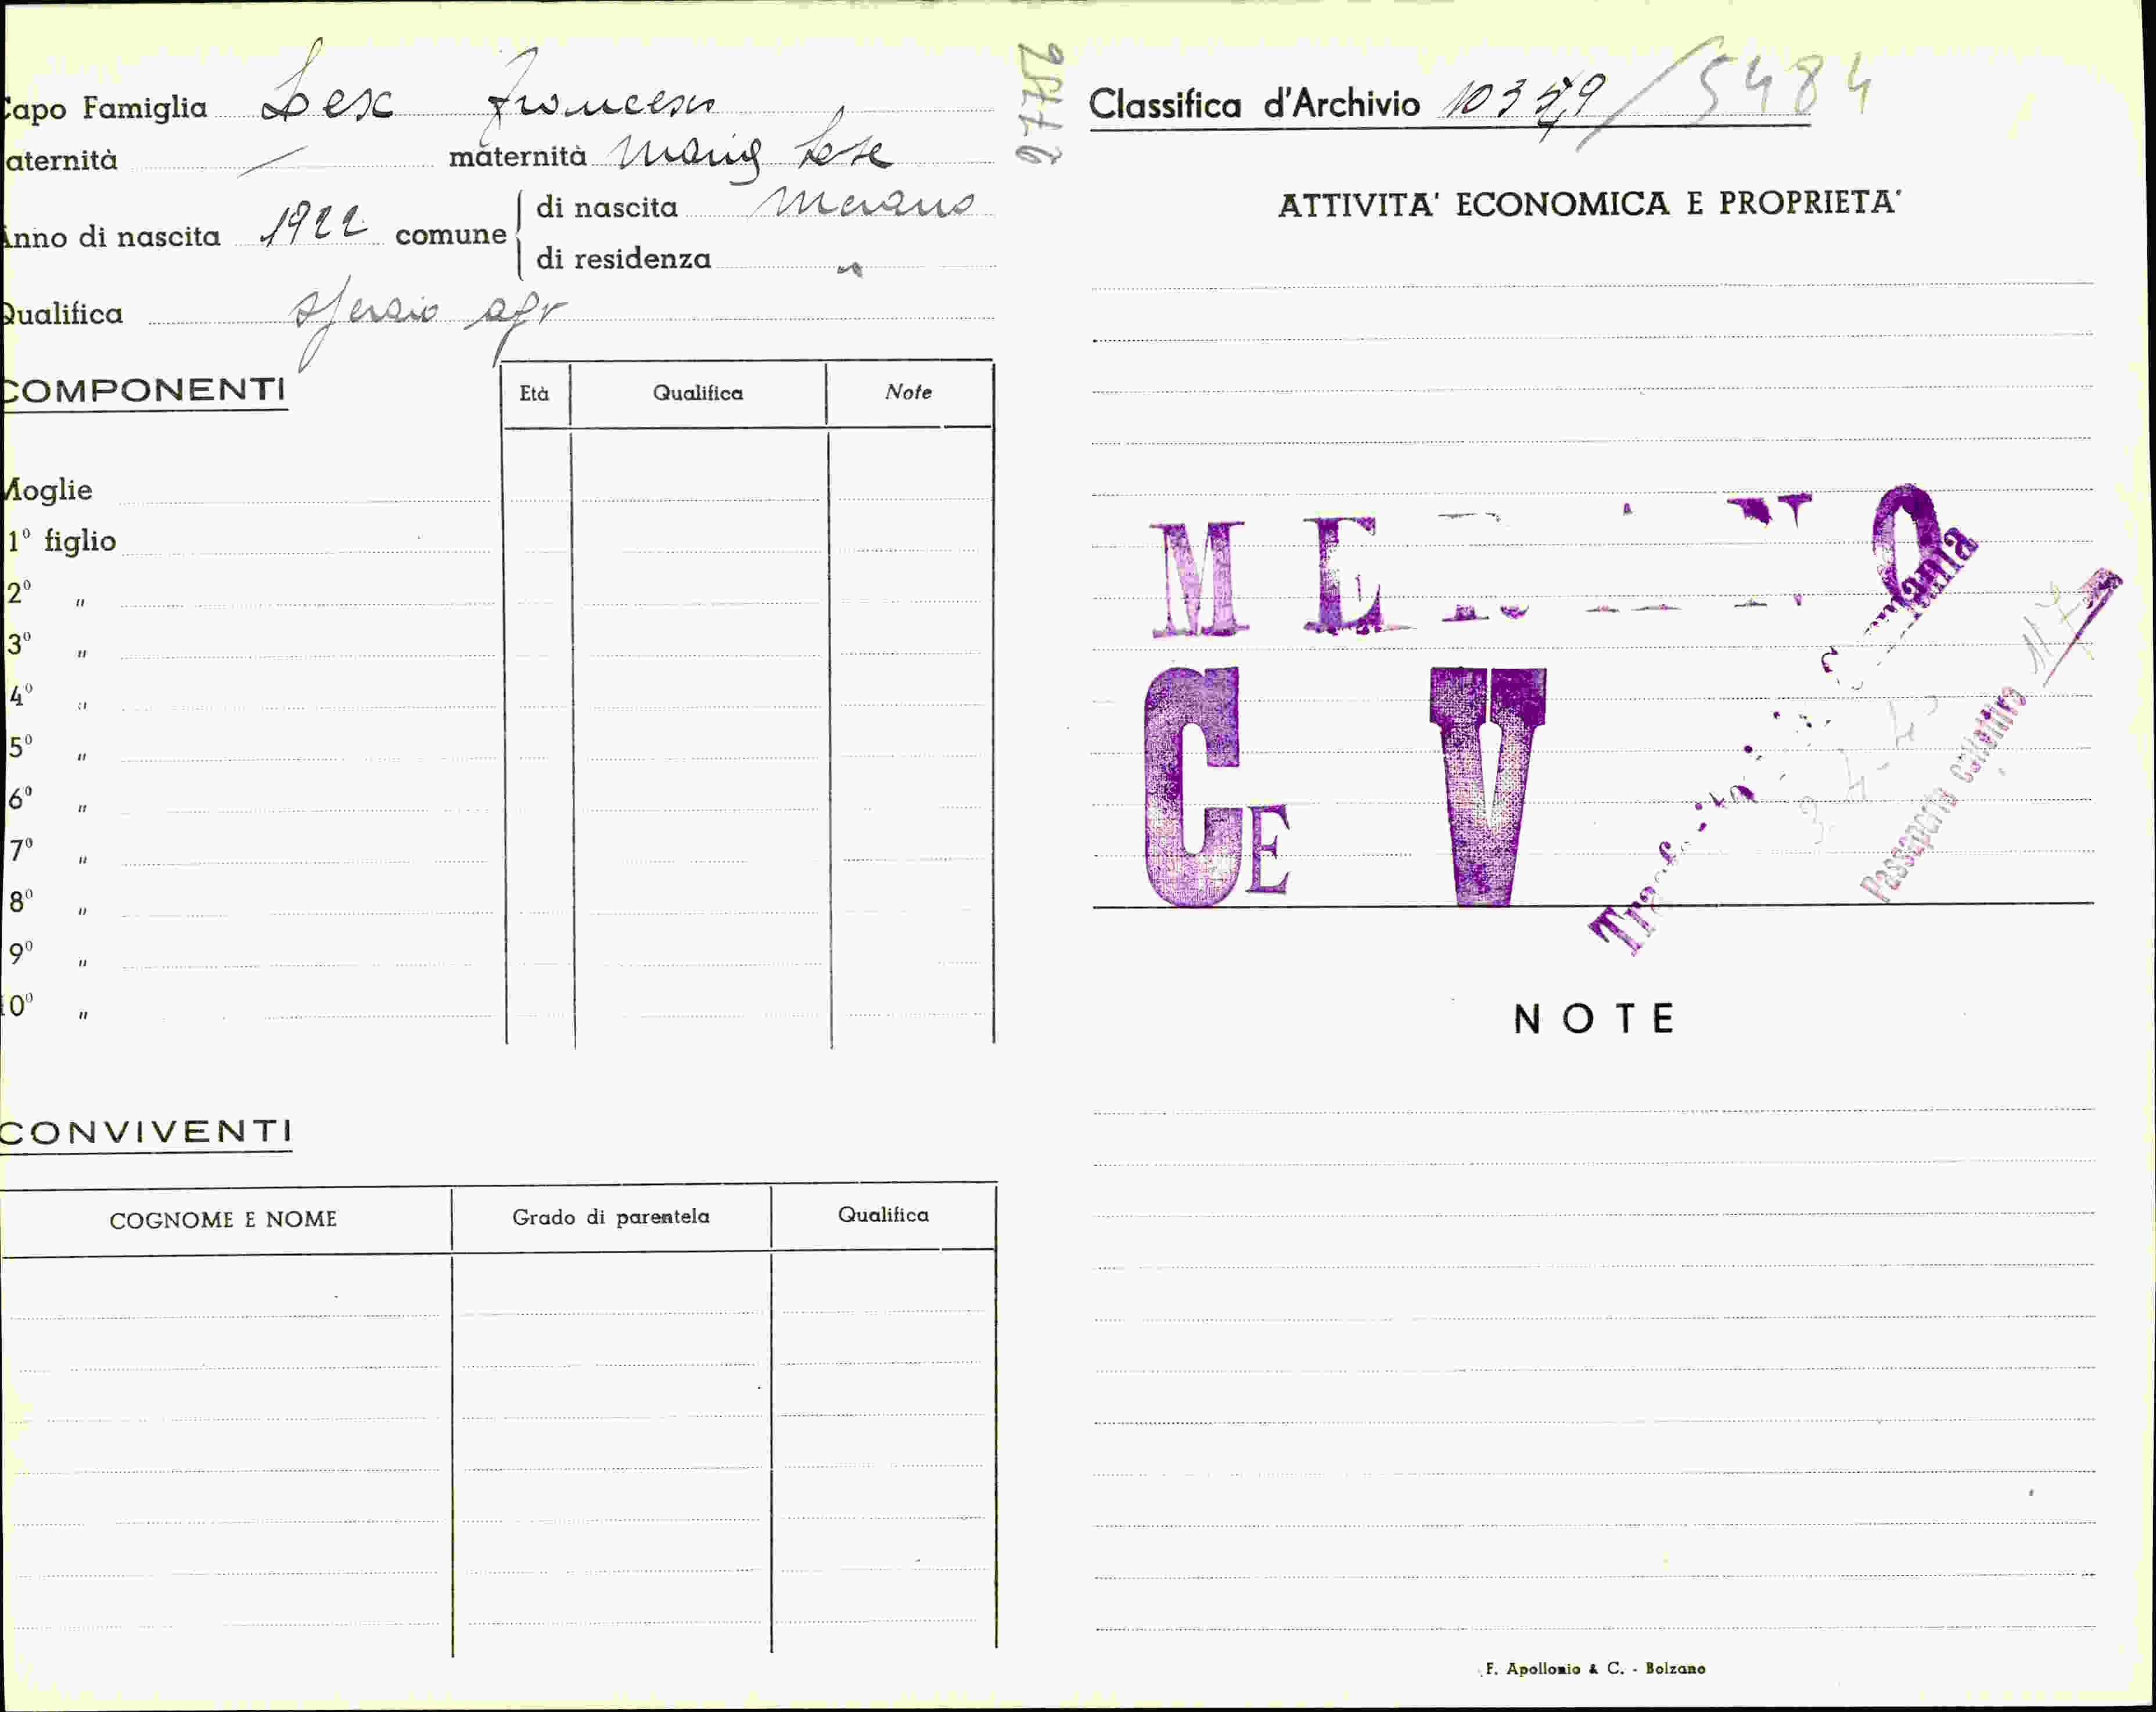 Capo Famiglia Lesc Francesco
aternità / maternità Maria Lese
Anno di nascita 1922 comune di nascita Merano
di residenza "
Qualifica
COMPONENTI Età Qualifica Note
Moglie
1º figlio
2º "
3º "
4º "
5º "
6º "
7º "
8º "
9º "
10º "
CONVIVENTI
COGNOME E NOME Grado di parentela Qualifica
Classifica d'Archivio / 5484
ATTIVITA' ECONOMICA E PROPRIETA'
ME O
CE V
Passaporto collettivo
NOTE
F. Apollonio & C. - Bolzano